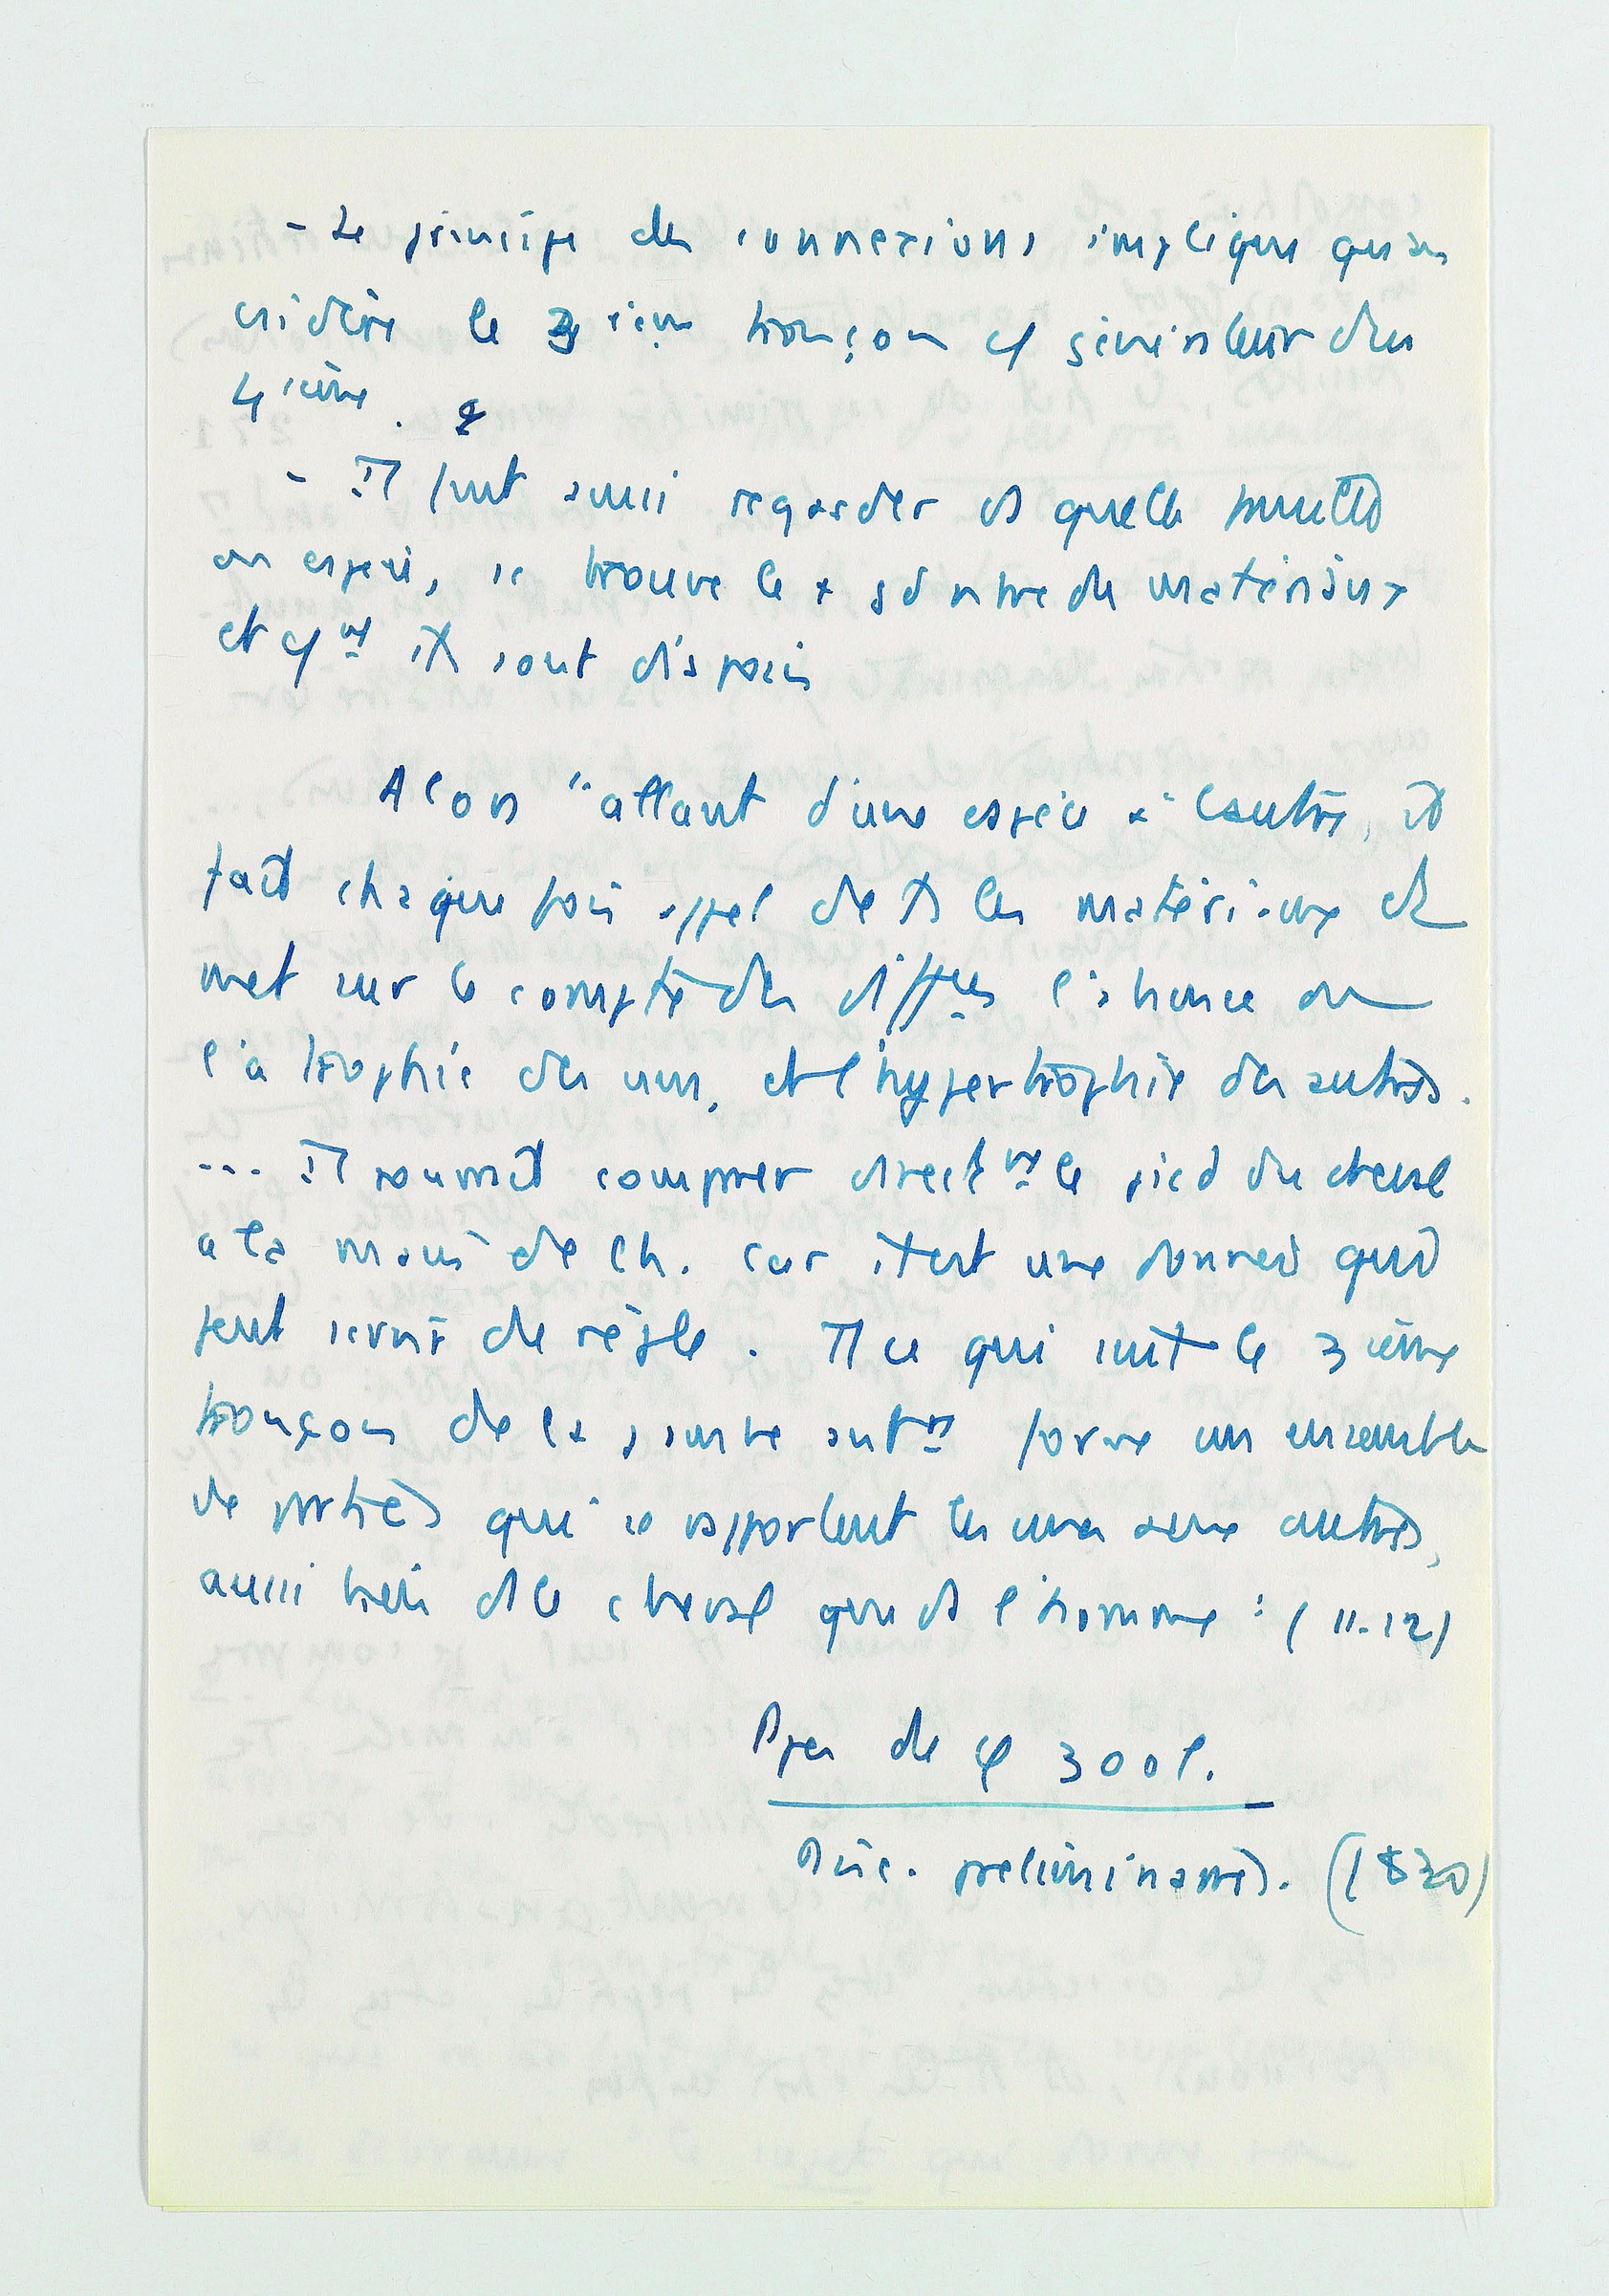 - Le principe des connexions implique qu'on
considère le 3 ième tronçon cf générateur du
4 ième.
- Il faut aussi regarder ds quelle famille
ou espèce, se trouve le + gd nbre de matériaux
et cmt ils sont disposés
Alors "allant d'une espèce à l'autre, il
fait chaque fois appel de ts les matériaux et
met sur le compte des diffces l'absence ou
l'atrophie des uns, et l'hypertrophie des autres.
... Il pourrait comparer directmt le pied du cheval
à la main de l'h. car il est une donnée qui
peut servir de règle. Tt ce qui suit le 3 ième
tronçon de la jambe antre forme un ensemble
de parties qui se rapportent les unes aux autres,
aussi bien ds le cheval que ds l'homme : (11-12)
Ppes de φ zool.
Disc. préliminaires. (1830)